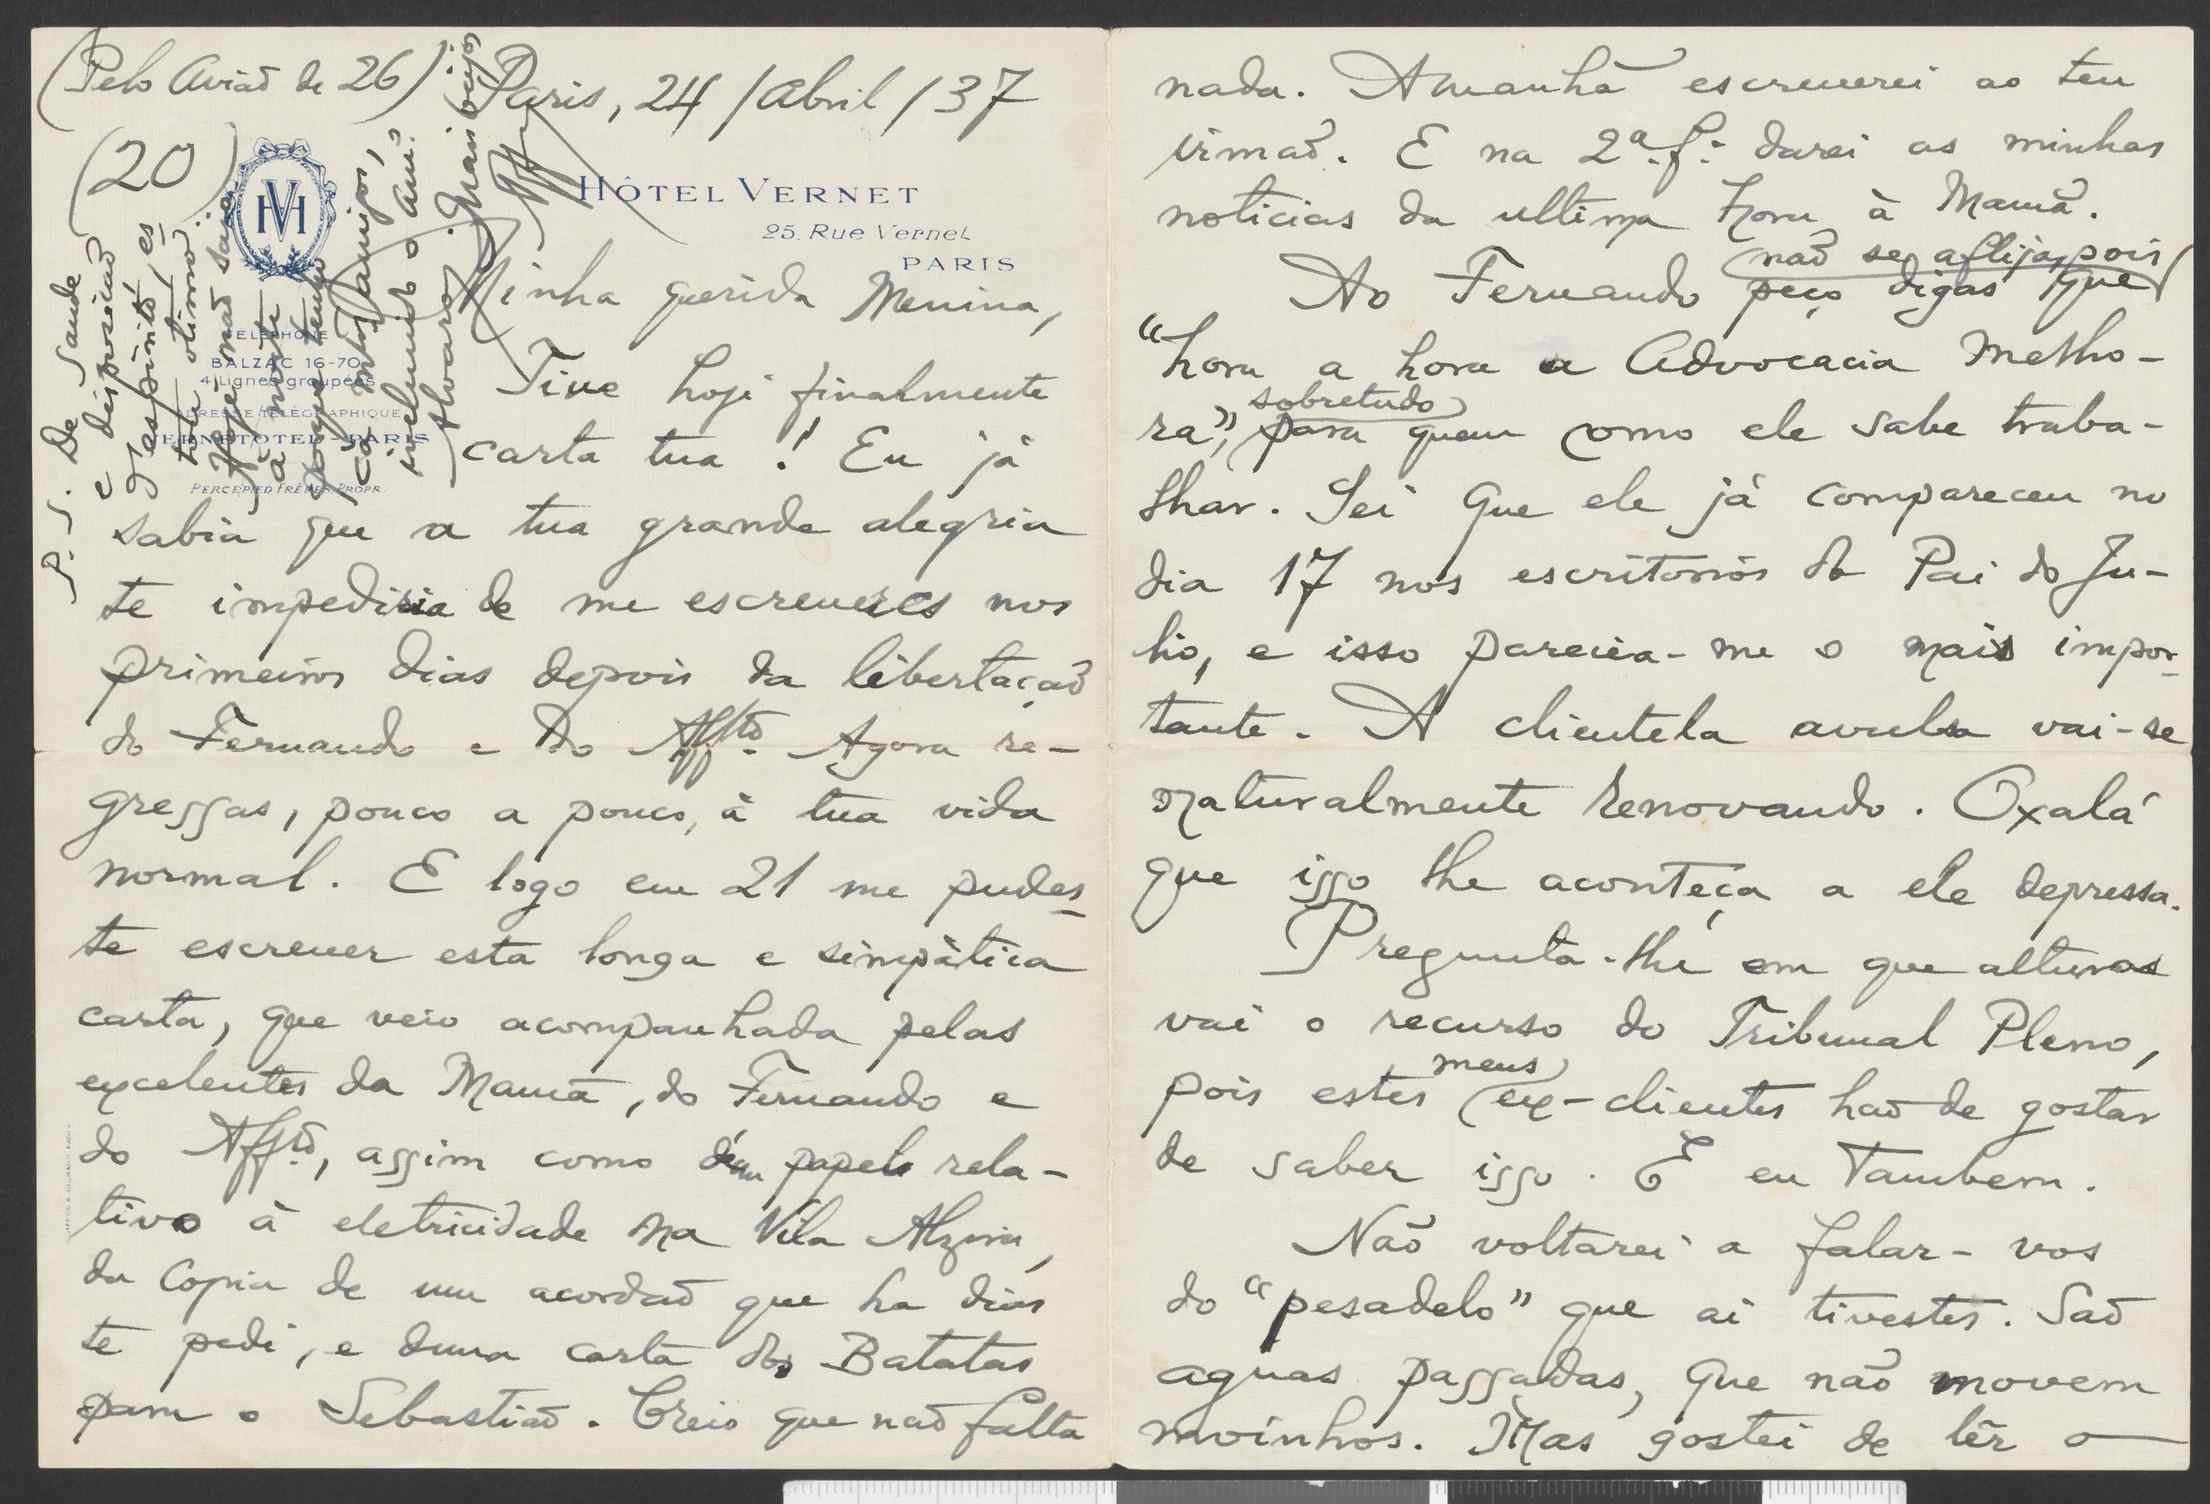 (Pelo Avião de 26)
Paris, 24/Abril/37
(20)
HV
HÔTEL VERNET
25. Rue Vernet
PARIS
TELEPHONE
BALZAC 16-70
4 Lignes groupées
ADRESSE TÉLÉGRAPHIQUE
VERNETOTEL-PARIS
PERCEPIED FRÈRES PROPR.
Minha querida Menina,
Tive hoje finalmente
carta tua! Eu já
sabia que a tua grande alegria
te impediria de me escreveres nos
primeiros dias depois da libertação
do Fernando e do Affto. Agora re-
gressas, pouco a pouco, à tua vida
normal. E logo em 21 me pudes-
te escrever esta longa e simpática
carta, que veio acompanhada pelas
excelentes da Mamã, do Fernando e
do Affto, assim como dum papel rela-
tivo à eletricidade na Vila Alzira,
da copia de um acordão que ha dias
te pedi, e duma carta dos Batatas
para o Sebastião. Creio que não falta
nada. Amanhã escreverei ao teu
irmão. E na 2ª.f. darei as minhas
noticias da ultima hora à Mamã.
Ao Fernando peço digas que
não se aflija, pois
"hora a hora a Advocacia melho-
ra", para quem como ele sabe traba-
sobretudo
lhar. Sei que ele já compareceu no
dia 17 nos escritorios do Pai do Ju-
lio, e isso parecia-me o mais impor-
tante. A clientela avulsa vai-se
naturalmente renovando. Oxalá
que isso lhe aconteça a ele depressa.
Pregunta-lhe em que alturas
vai o recurso do Tribunal Pleno,
pois estes meus ex-clientes hão de gostar
de saber isso. E eu tambem.
Não voltarei a falar-vos
do "pesadelo" que ai tivestes. São
aguas passadas, que não movem
moínhos. Mas gostei de lêr o
P.S. De saude
e disposição
d'espirito, es-
tou otimo.
Hoje não saio
à noite
porque tenho
cá mtos amigos,
incluindo o
Alvaro. Mais beijos